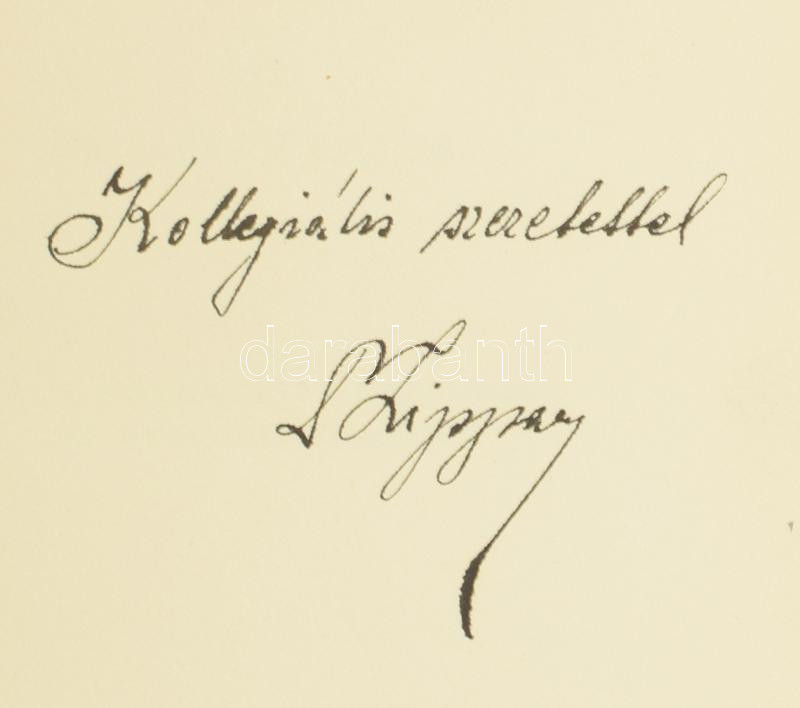 Kollegiális szeretettel
darabanth